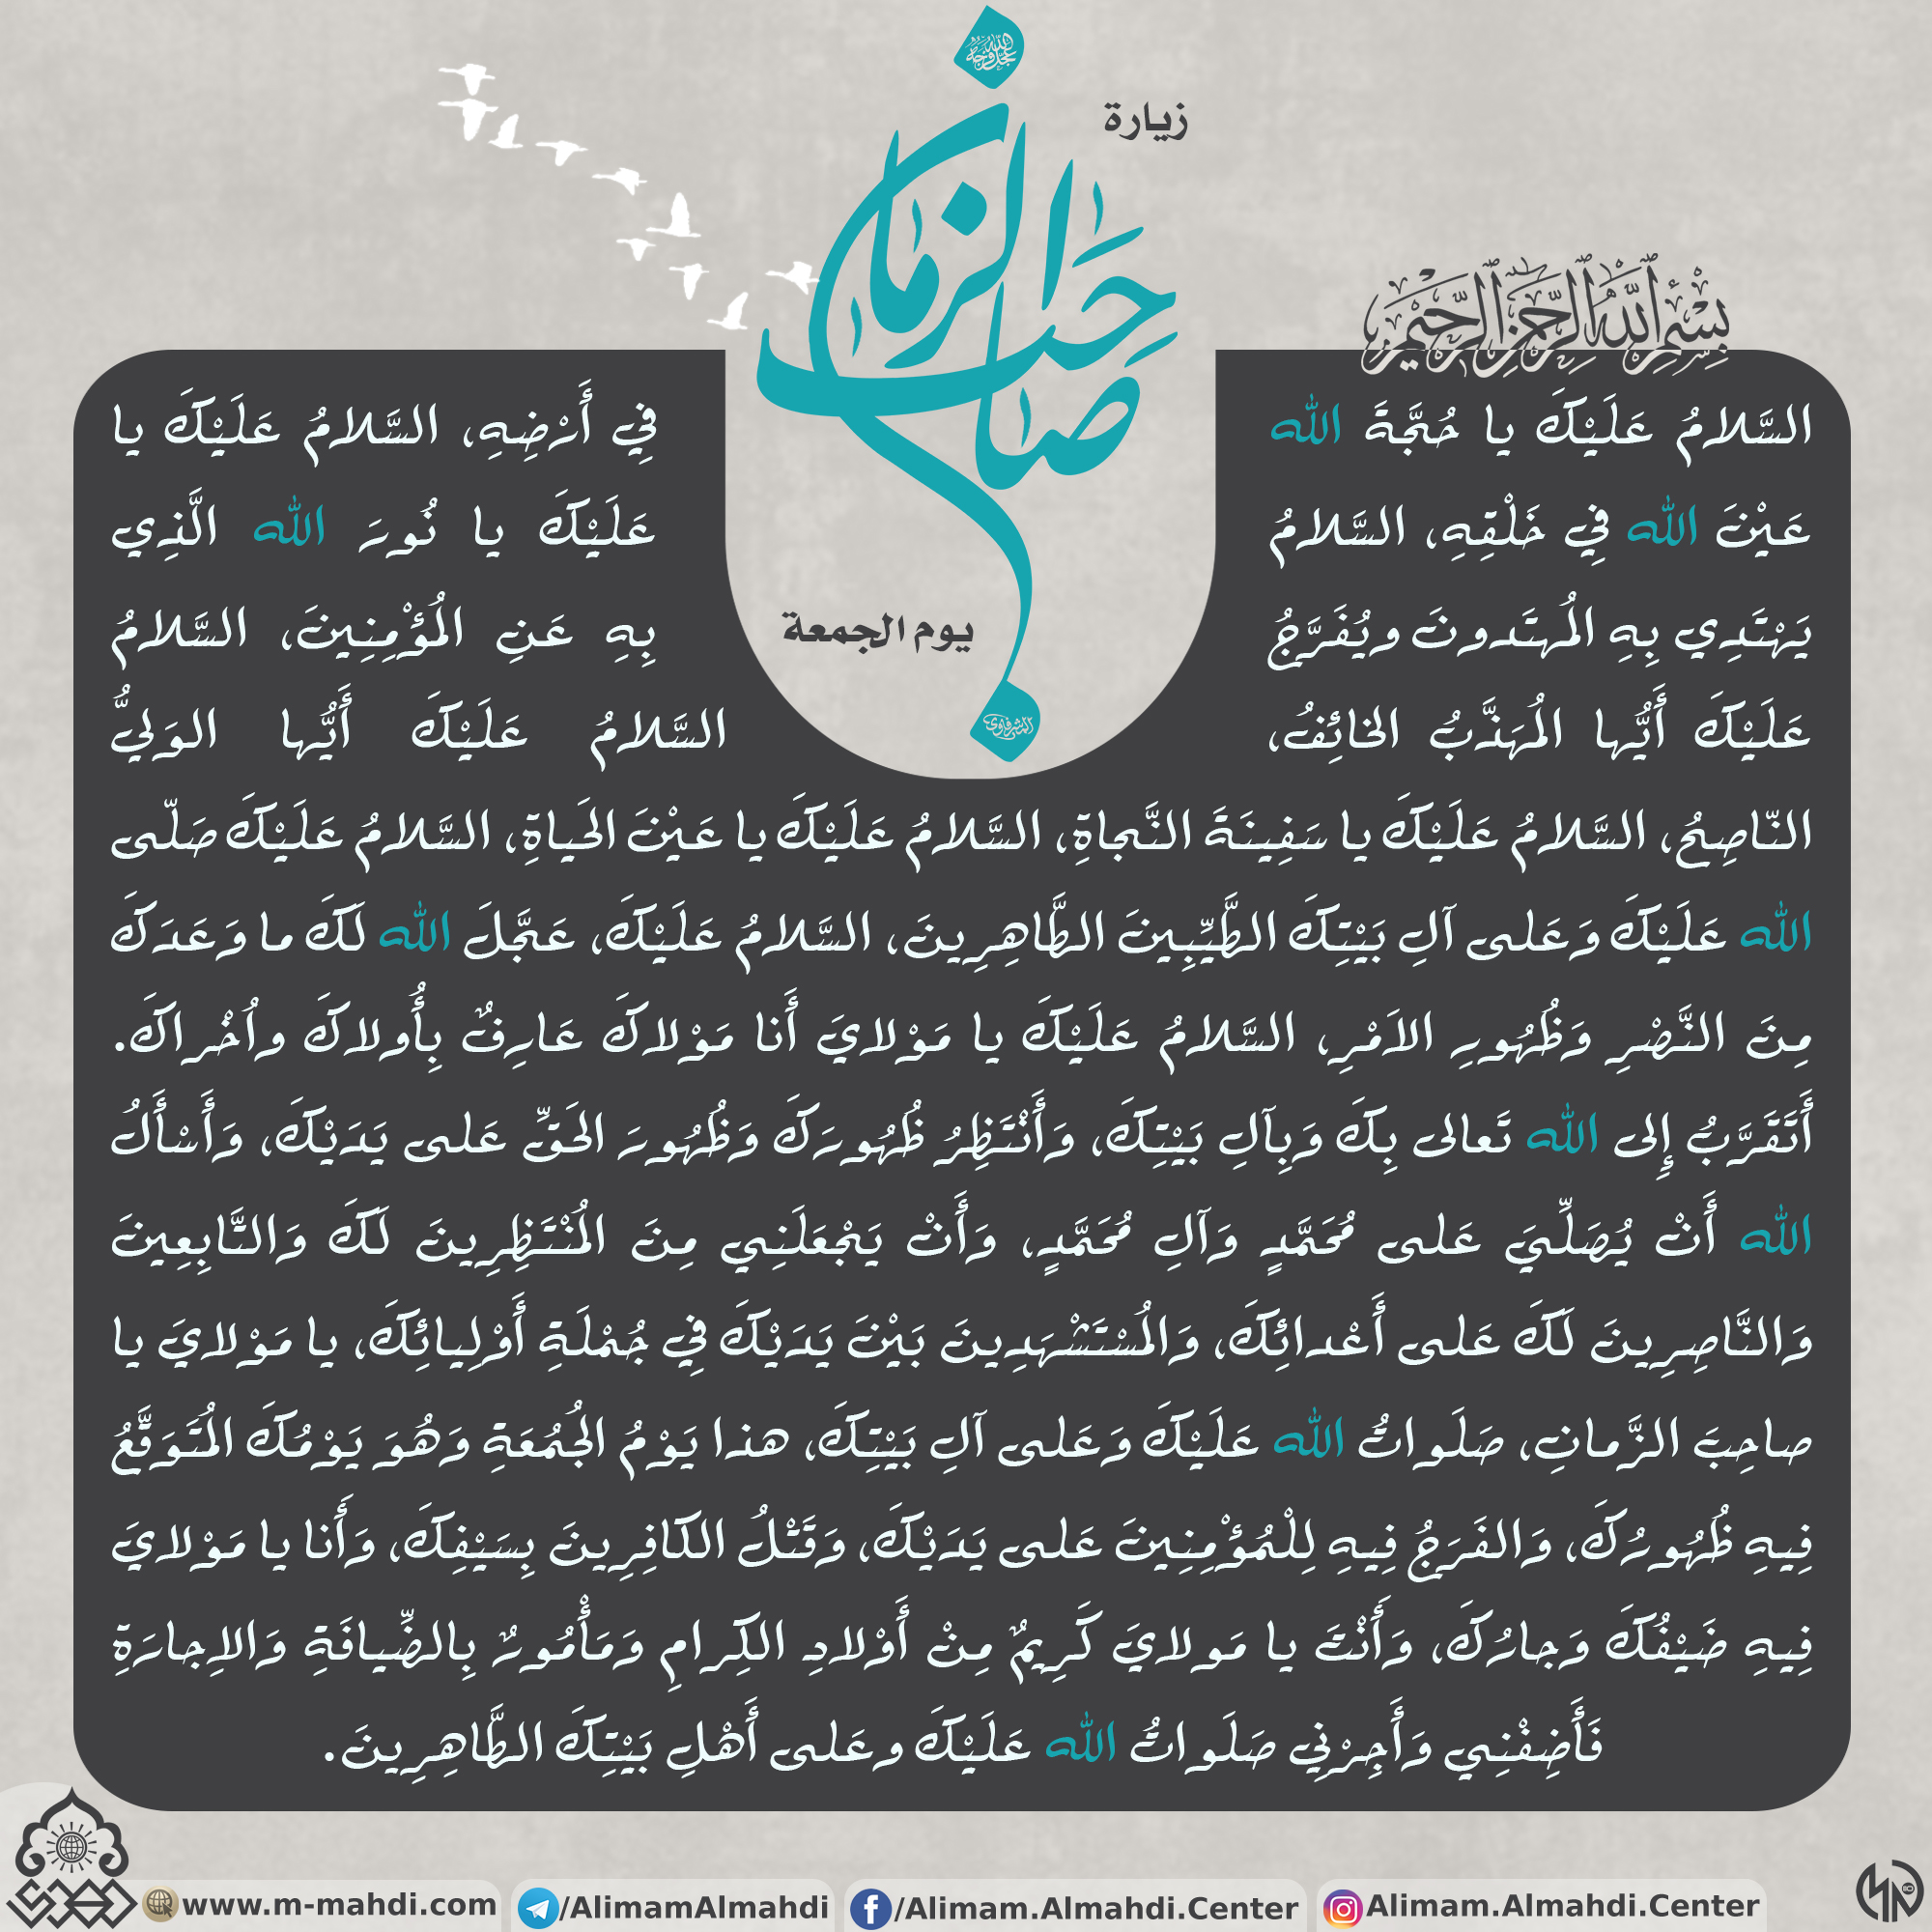 عجل الله فرجه
زيارة
صاحب الزمان
يوم الجمعة
المشرفاوي
بِسْمِ اللَّهِ الرَّحْمَٰنِ الرَّحِيمِ
السَّلامُ عَلَيْكَ يا حُجَّةَ الله فِي أَرْضِهِ، السَّلامُ عَلَيْكَ يا
عَيْنَ الله فِي خَلْقِهِ، السَّلامُ عَلَيْكَ يا نُورَ الله الَّذِي
يَهْتَدِي بِهِ المُهتَدونَ ويُفَرَّجُ بِهِ عَنِ المُؤْمِنِينَ، السَّلامُ
عَلَيْكَ أَيُّها المُهَذَّبُ الخائِفُ، السَّلامُ عَلَيْكَ أَيُّها الوَلِيُّ
النّاصِحُ، السَّلامُ عَلَيْكَ يا سَفِينَةَ النَّجاةِ، السَّلامُ عَلَيْكَ يا عَيْنَ الحَياةِ، السَّلامُ عَلَيْكَ صَلّى
الله عَلَيْكَ وَعَلى آلِ بَيْتِكَ الطَّيِّبِينَ الطَّاهِرِينَ، السَّلامُ عَلَيْكَ، عَجَّلَ الله لَكَ ما وَعَدَكَ
مِنَ النَّصْرِ وَظُهُورِ الاَمْرِ، السَّلامُ عَلَيْكَ يا مَوْلايَ أَنا مَوْلاكَ عَارِفٌ بِأُولاكَ واُخْراكَ.
أَتَقَرَّبُ إِلى الله تَعالى بِكَ وَبِآلِ بَيْتِكَ، وَأَنْتَظِرُ ظُهُورَكَ وَظُهُورَ الحَقِّ عَلى يَدَيْكَ، وَأَسْأَلُ
الله أَنْ يُصَلِّيَ عَلى مُحَمَّدٍ وَآلِ مُحَمَّدٍ، وَأَنْ يَجْعَلَنِي مِنَ المُنْتَظِرِينَ لَكَ وَالتَّابِعِينَ
وَالنَّاصِرِينَ لَكَ عَلى أَعْدائِكَ، وَالمُسْتَشْهَدِينَ بَيْنَ يَدَيْكَ فِي جُمْلَةِ أَوْلِيائِكَ، يا مَوْلايَ يا
صاحِبَ الزَّمانِ، صَلَواتُ الله عَلَيْكَ وَعَلى آلِ بَيْتِكَ، هذا يَوْمُ الجُمُعَةِ وَهُوَ يَوْمُكَ المُتَوَقَّعُ
فِيهِ ظُهُورُكَ، وَالفَرَجُ فِيهِ لِلْمُؤْمِنِينَ عَلى يَدَيْكَ، وَقَتْلُ الكافِرِينَ بِسَيْفِكَ، وَأَنا يا مَوْلايَ
فِيهِ ضَيْفُكَ وَجارُكَ، وَأَنْتَ يا مَولايَ كَرِيمٌ مِنْ أَوْلادِ الكِرامِ وَمَأْمُورٌ بِالضِّيافَةِ وَالاِجارَةِ
فَأَضِفْنِي وَأَجِرْنِي صَلَواتُ الله عَلَيْكَ وعَلى أَهْلِ بَيْتِكَ الطَّاهِرِينَ.
www.m-mahdi.com /AlimamAlmahdi /Alimam.Almahdi.Center Alimam.Almahdi.Center